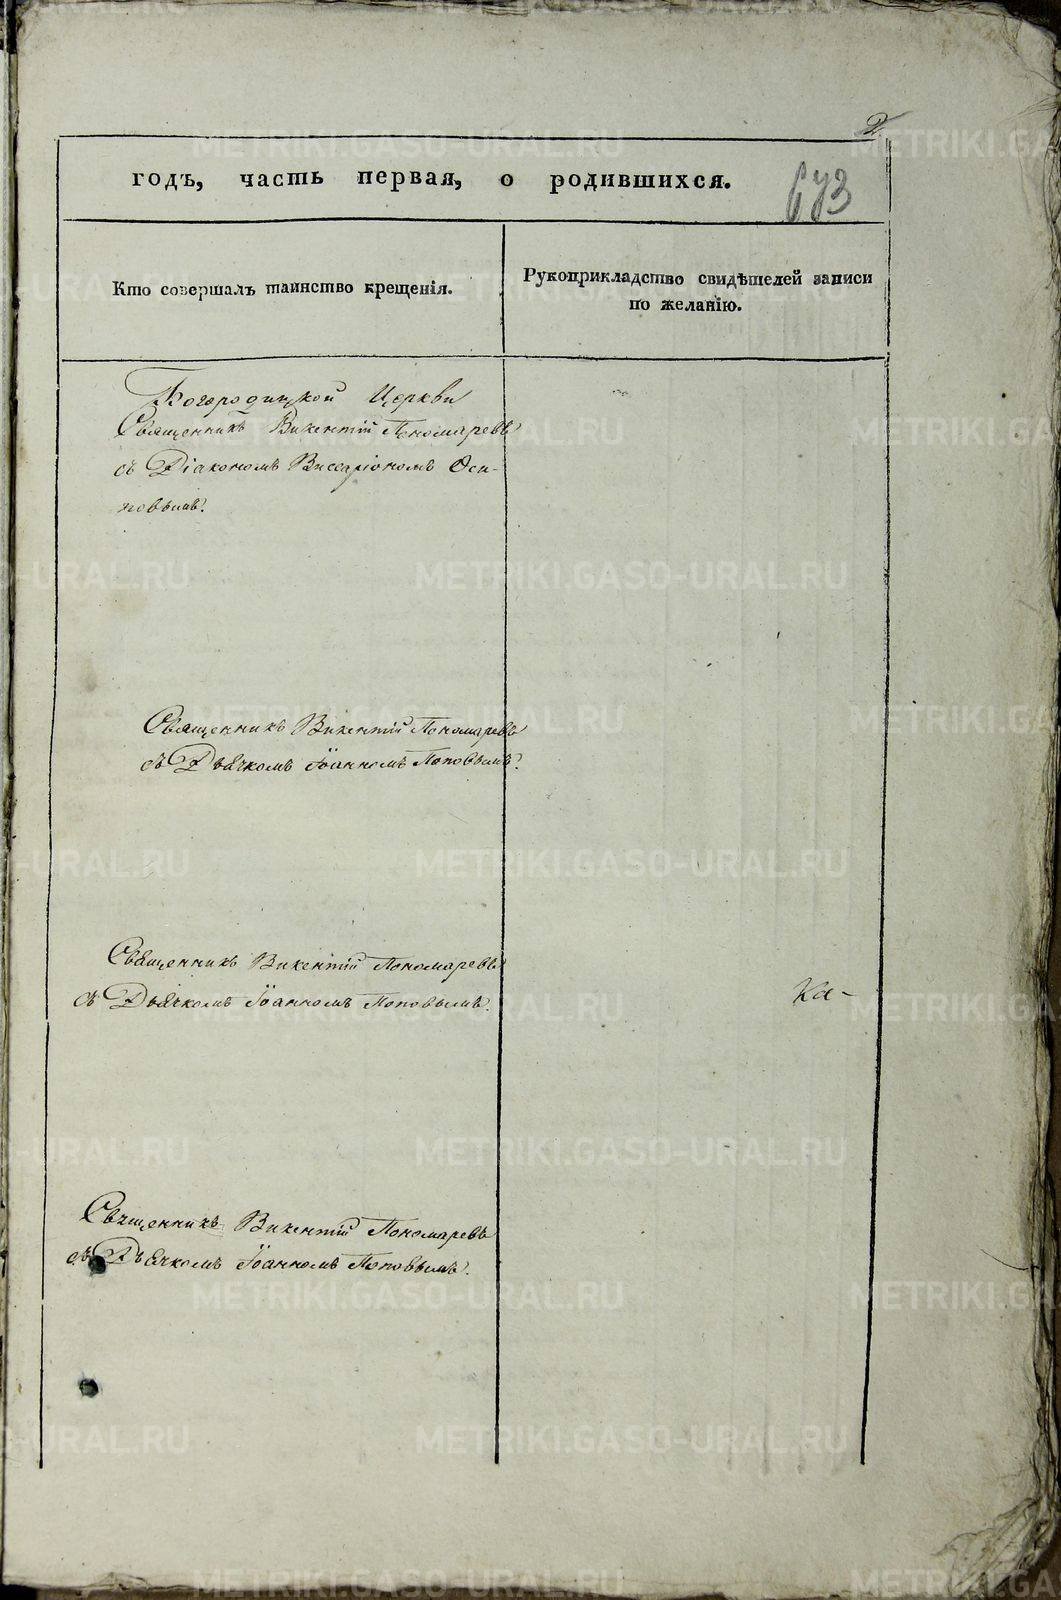 2
годъ, часть первая, о родившихся.
673
Кто совершалъ таинство крещенія.
Рукоприкладство свидѣтелей записи
по желанію.
Богородицкой Церкви
Священникъ Викентій Пономаревъ
съ Діакономъ Виссаріономъ Оси-
повымъ.
Священникъ Викентій Пономаревъ
съ Дьячкомъ Іоанномъ Поповымъ.
Священникъ Викентій Пономаревъ
съ Дьячкомъ Іоанномъ Поповымъ.
Ка-
Священникъ Викентій Пономаревъ
съ Дьячкомъ Іоанномъ Поповымъ.
METRIKI.GASO-URAL.RU